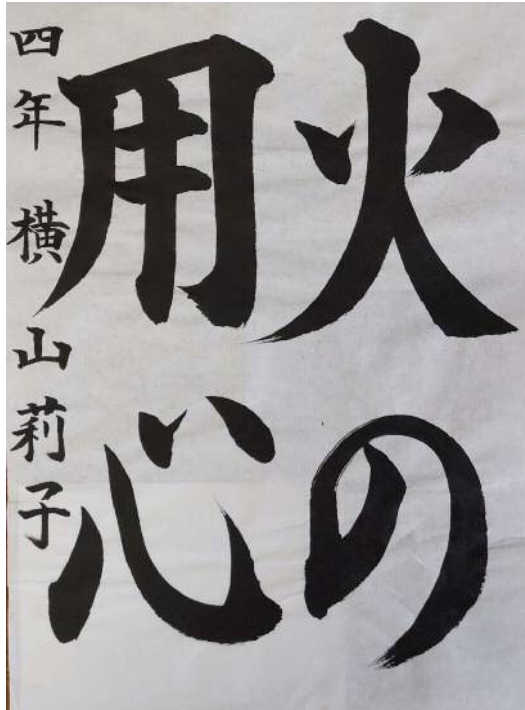 火の
用心
四年 横山莉子